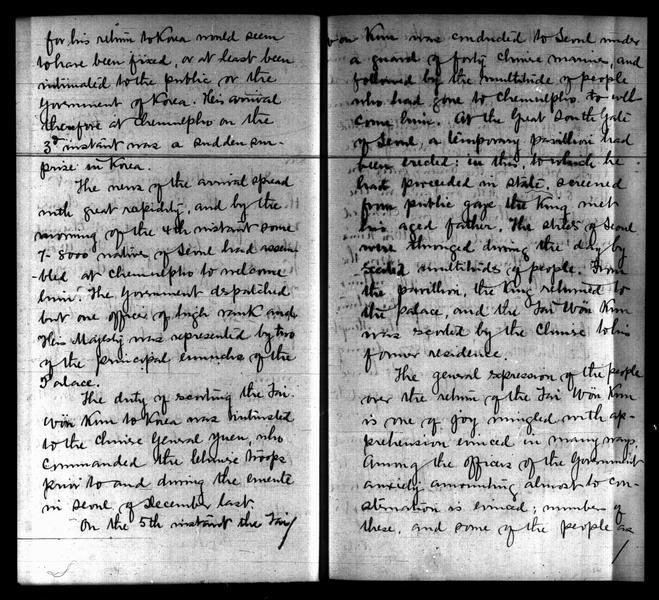 for his return to Korea would seem
to have been fixed, or at least been
intimated to the public or the
Government of Korea. His arrival
therefore at Chemulpho on the
3d instant was a sudden sur-
prise in Korea.
The news of the arrival spread
with great rapidity, and by the
morning of the 4th instant some
7-8000 natives of Seoul had assem-
-bled at Chemulpho to welcome
him. The Government despatched
but one officer of high rank and
His Majesty was represented by two
of the principal eunuchs of the
Palace.
The duty of escorting the Tai-
Wön Kun to Korea was intrusted
to the Chinese General Yuen, who
commanded the Chinese troops
prior to and during the emeute
in Seoul of December last.
On the 5th instant the Tai
Wön Kun was conducted to Seoul under
a guard of forty Chinese marines, and
followed by the multitude of people
who had gone to Chemulpho to wel-
come him. At the Great South Gate
of Seoul, a temporary pavillion had
been erected: in this, to which he
had proceeded in state, screened
from public gaze the King met
his aged father. The streets of Seoul
were thronged during the day by
excited multitudes of people. From
the pavillion, the King returned to
the palace, and the Tai Wön Kun
was escorted by the Chinese to his
former residence.
The general expression of the people
over the return of the Tai Wön Kun
is one of joy mingled with ap-
prehension evinced in many ways.
Among the officers of the Government
anxiety amounting almost to con-
sternation is evinced; numbers of
these, and some of the people as